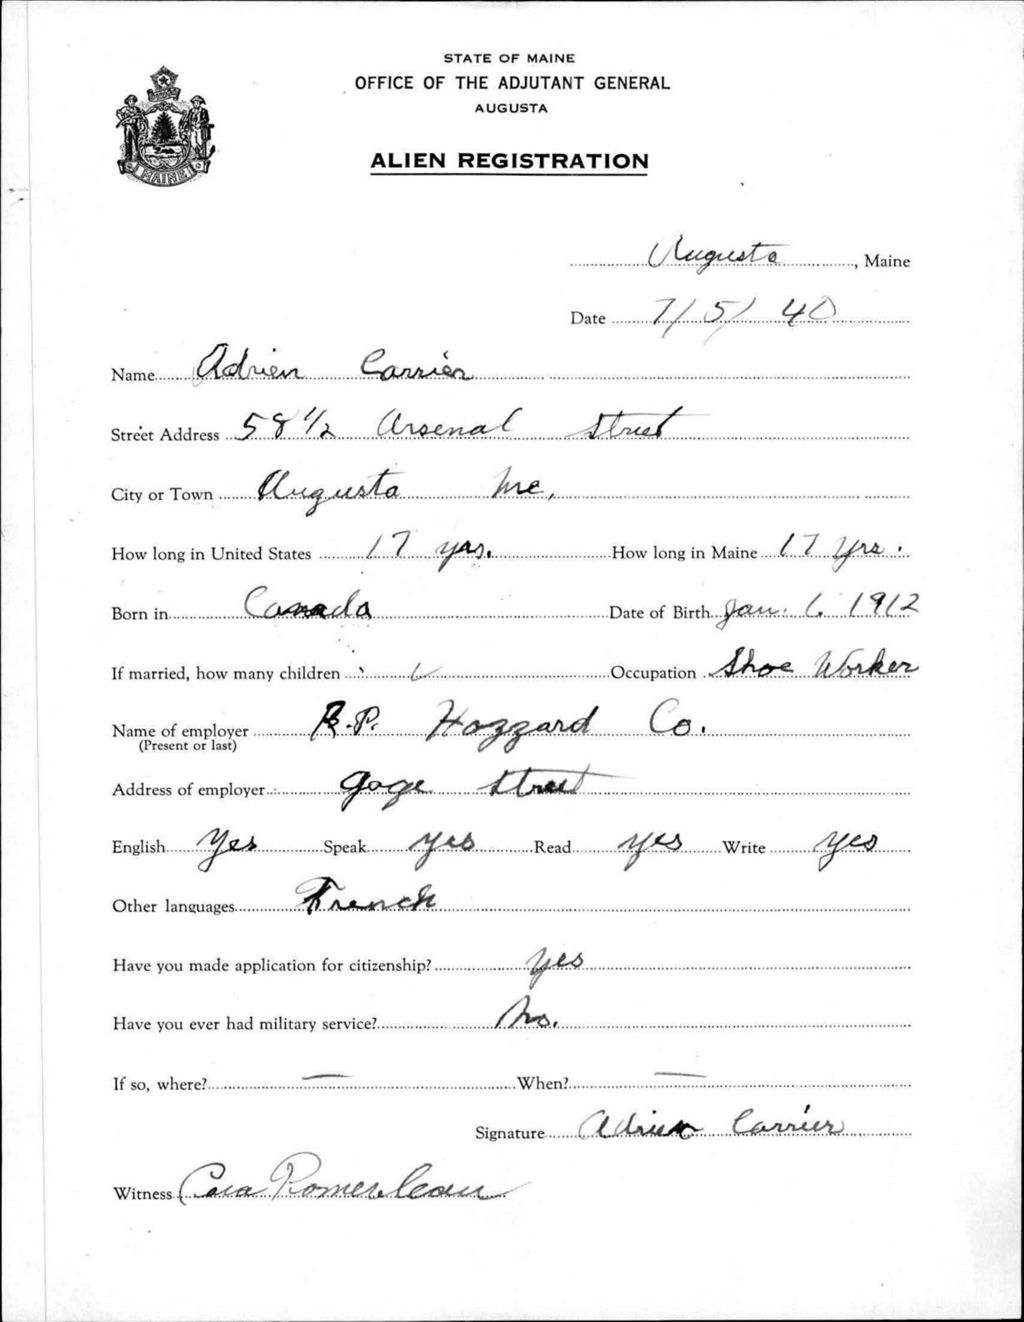 STATE OF MAINE
OFFICE OF THE ADJUTANT GENERAL
AUGUSTA
ALIEN REGISTRATION
MAINE
Augusta, Maine
Date 7/5/40
Name Adrien Carrier
Street Address 58 1/2 Arsenal Street
City or Town Augusta Me.
How long in United States 17 yrs. How long in Maine 17 yrs.
Born in Canada Date of Birth Jan. 1. 1912
If married, how many children Occupation Shoe Worker
Name of employer R.P. Hozzard Co.
(Present or last)
Address of employer Gage Street
English Yes Speak yes Read yes Write yes
Other languages French
Have you made application for citizenship? yes
Have you ever had military service? No.
If so, where? — When? —
Signature Adrien Carrier
Witness Pomerleau